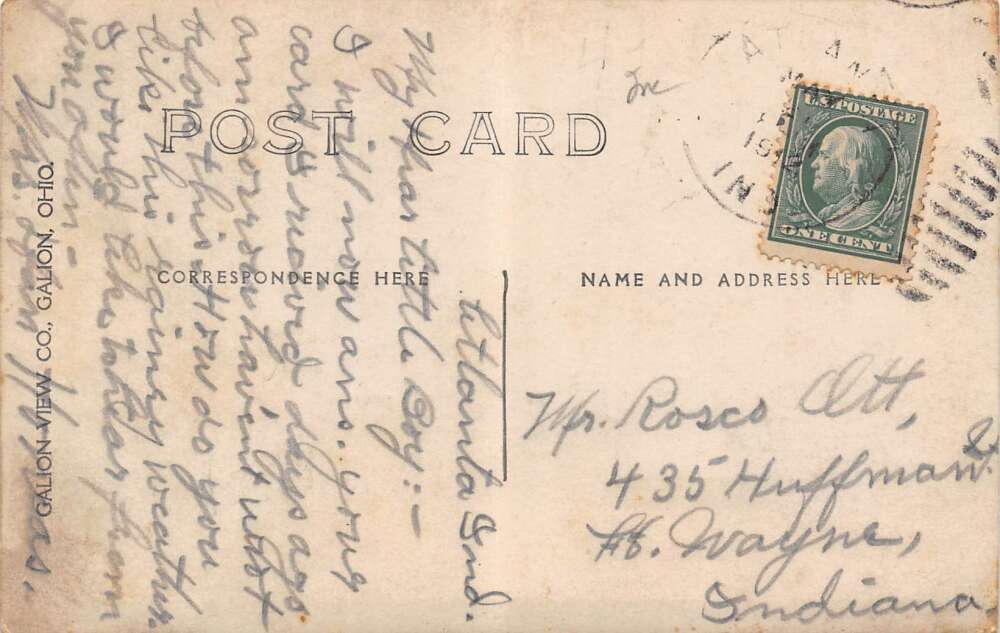 POST CARD
CORRESPONDENCE HERE
NAME AND ADDRESS HERE
GALION-VIEW CO., GALION, OHIO.
U.S. POSTAGE
ONE CENT
IND
Atlanta Ind.
My dear little Boy:-
I will now ans. your
card received days ago
am sorry haven't wrot
before this. How do you
like this rainey weather
I would like to hear from
you again-
Mr. Rosco Ott,
435 Huffman St.
Ft. Wayne,
Indiana.